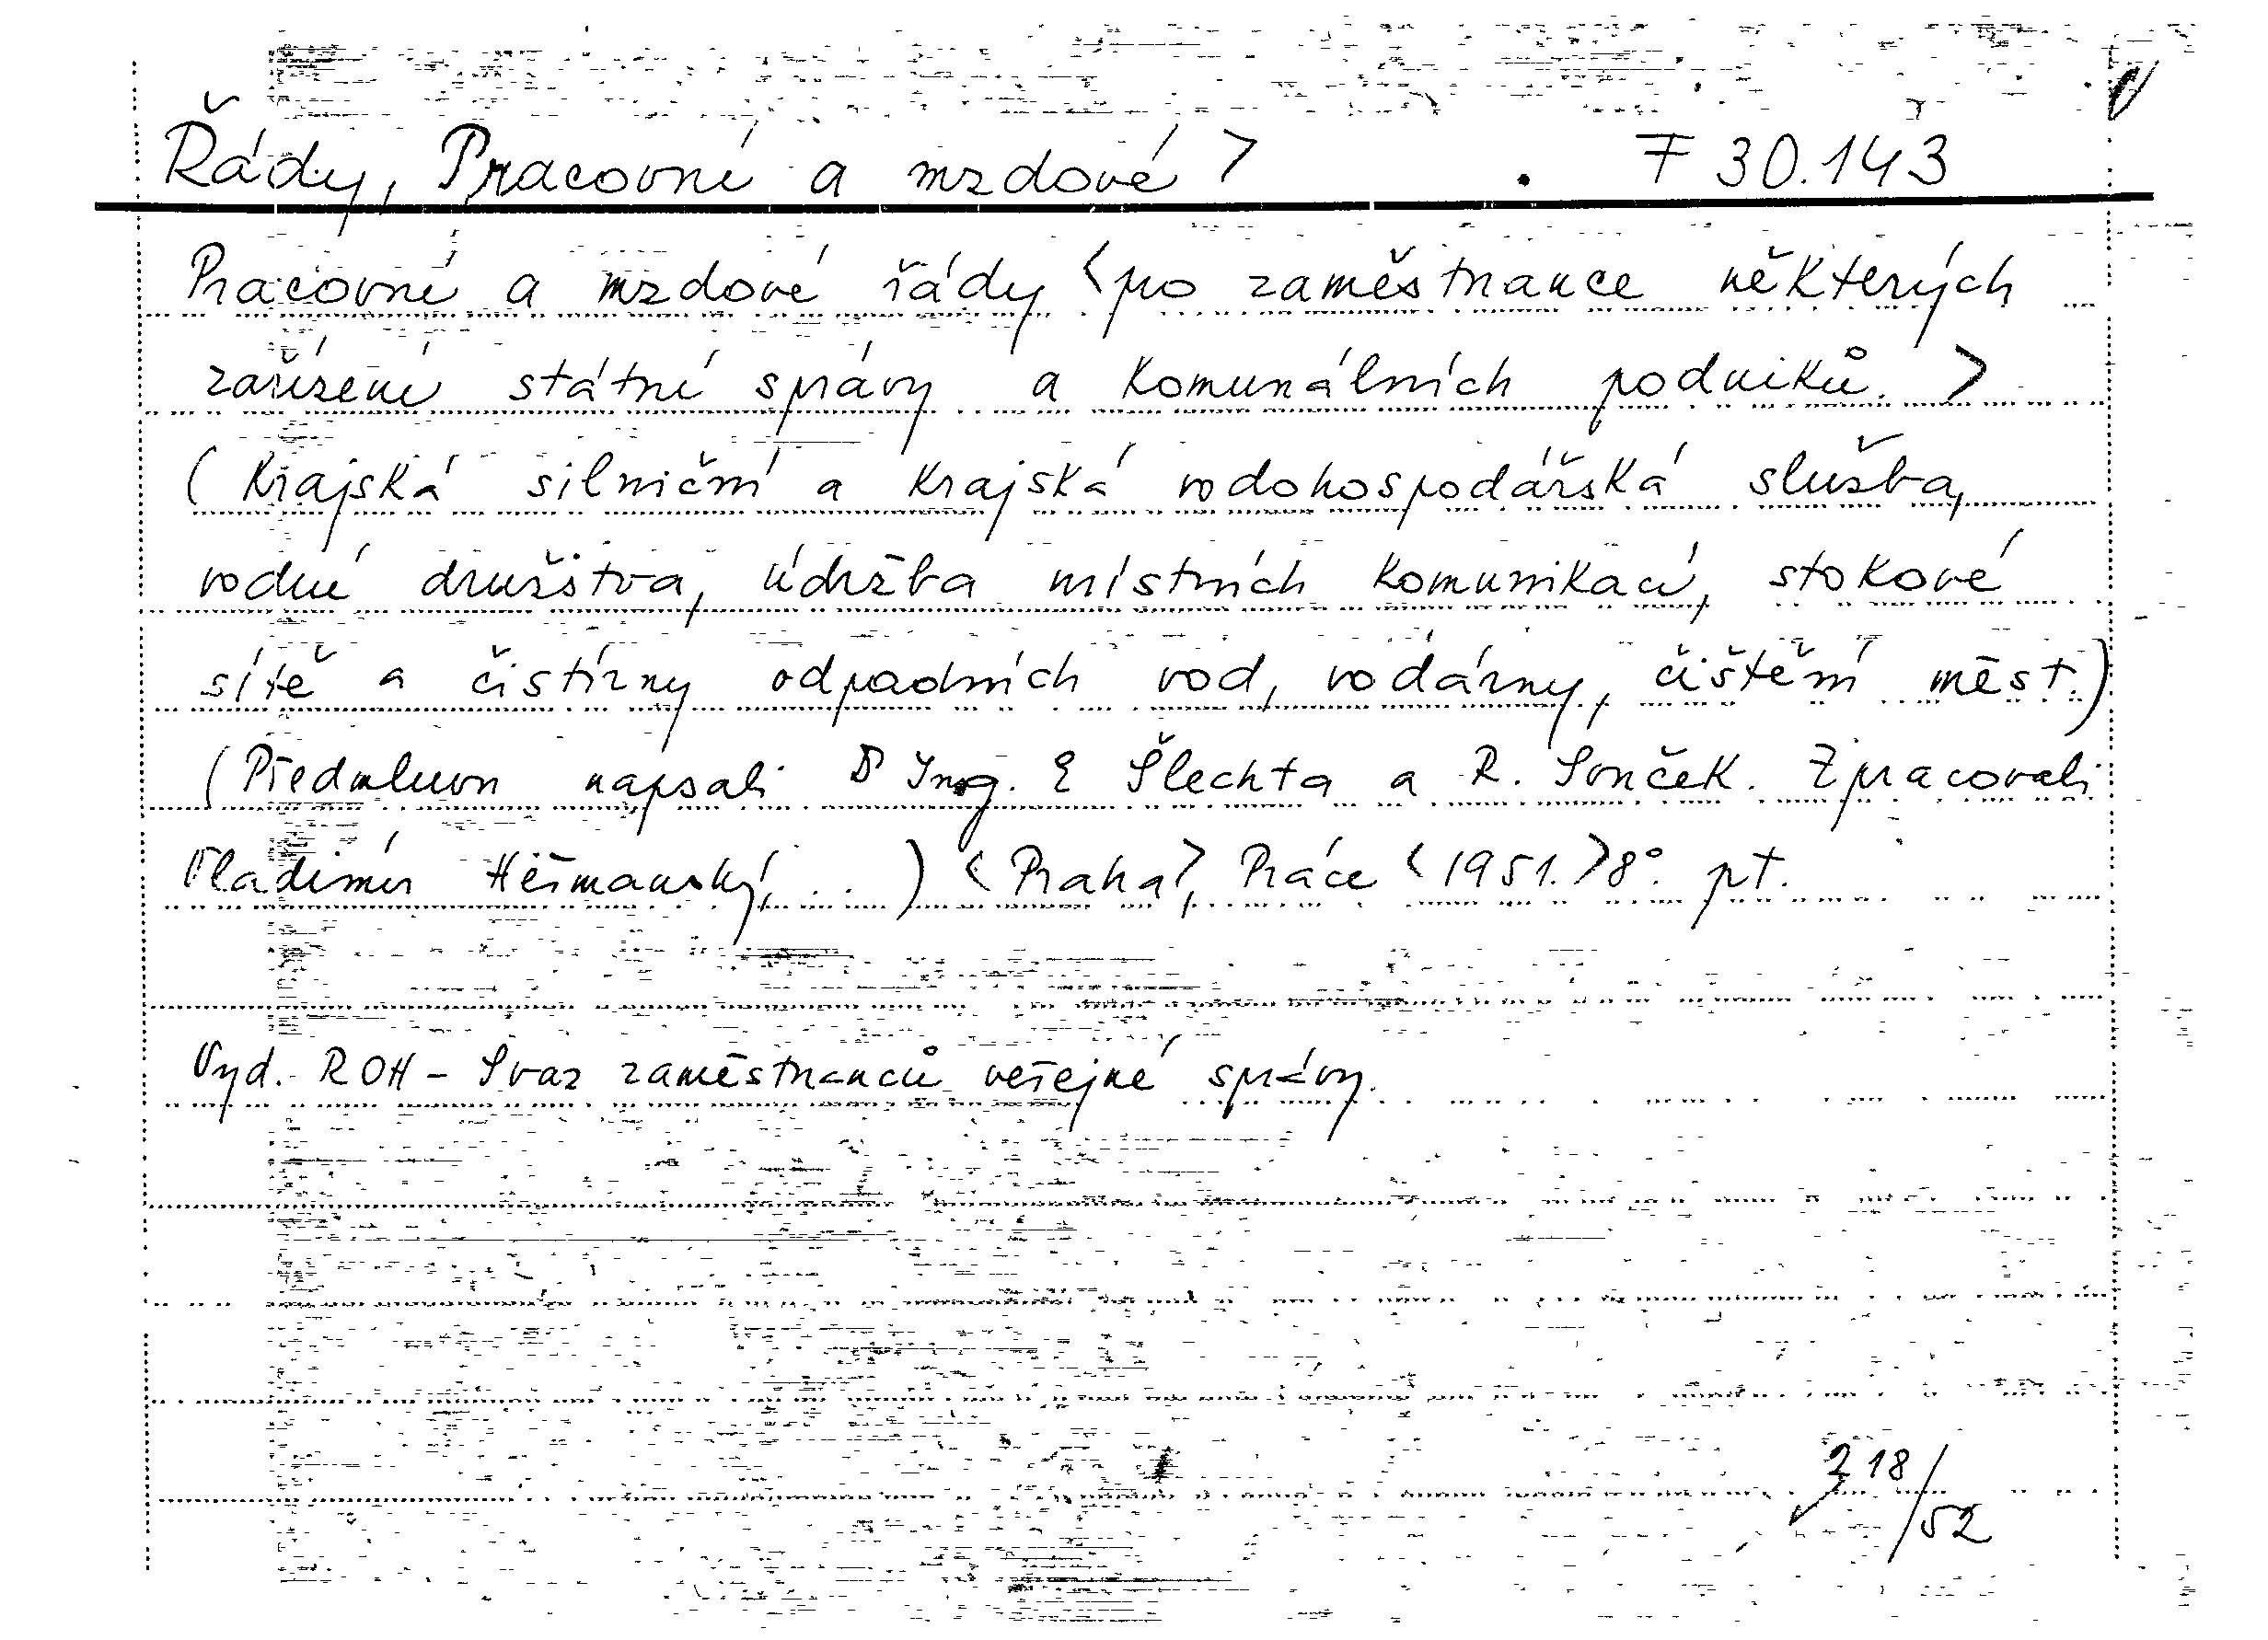 Řády, Pracovní a mzdové > F 30.143
Pracovní a mzdové řády <pro zaměstnance některých
zařízení státní správy a komunálních podniků. >
(Krajská silniční a krajská vodohospodářská služba,
vodní družstva, údržba místních komunikací, stokové
sítě a čistírny odpadních vod, vodárny, čištění měst.)
(Předmluvu napsali Dr Ing. E Šlechta a R. Sonček. Zpracovali
Vladimír Heřmanský, ...) <Praha>, Práce <1951.> 8°. pt.
Vyd. ROH - Svaz zaměstnanců veřejné správy.
218/52